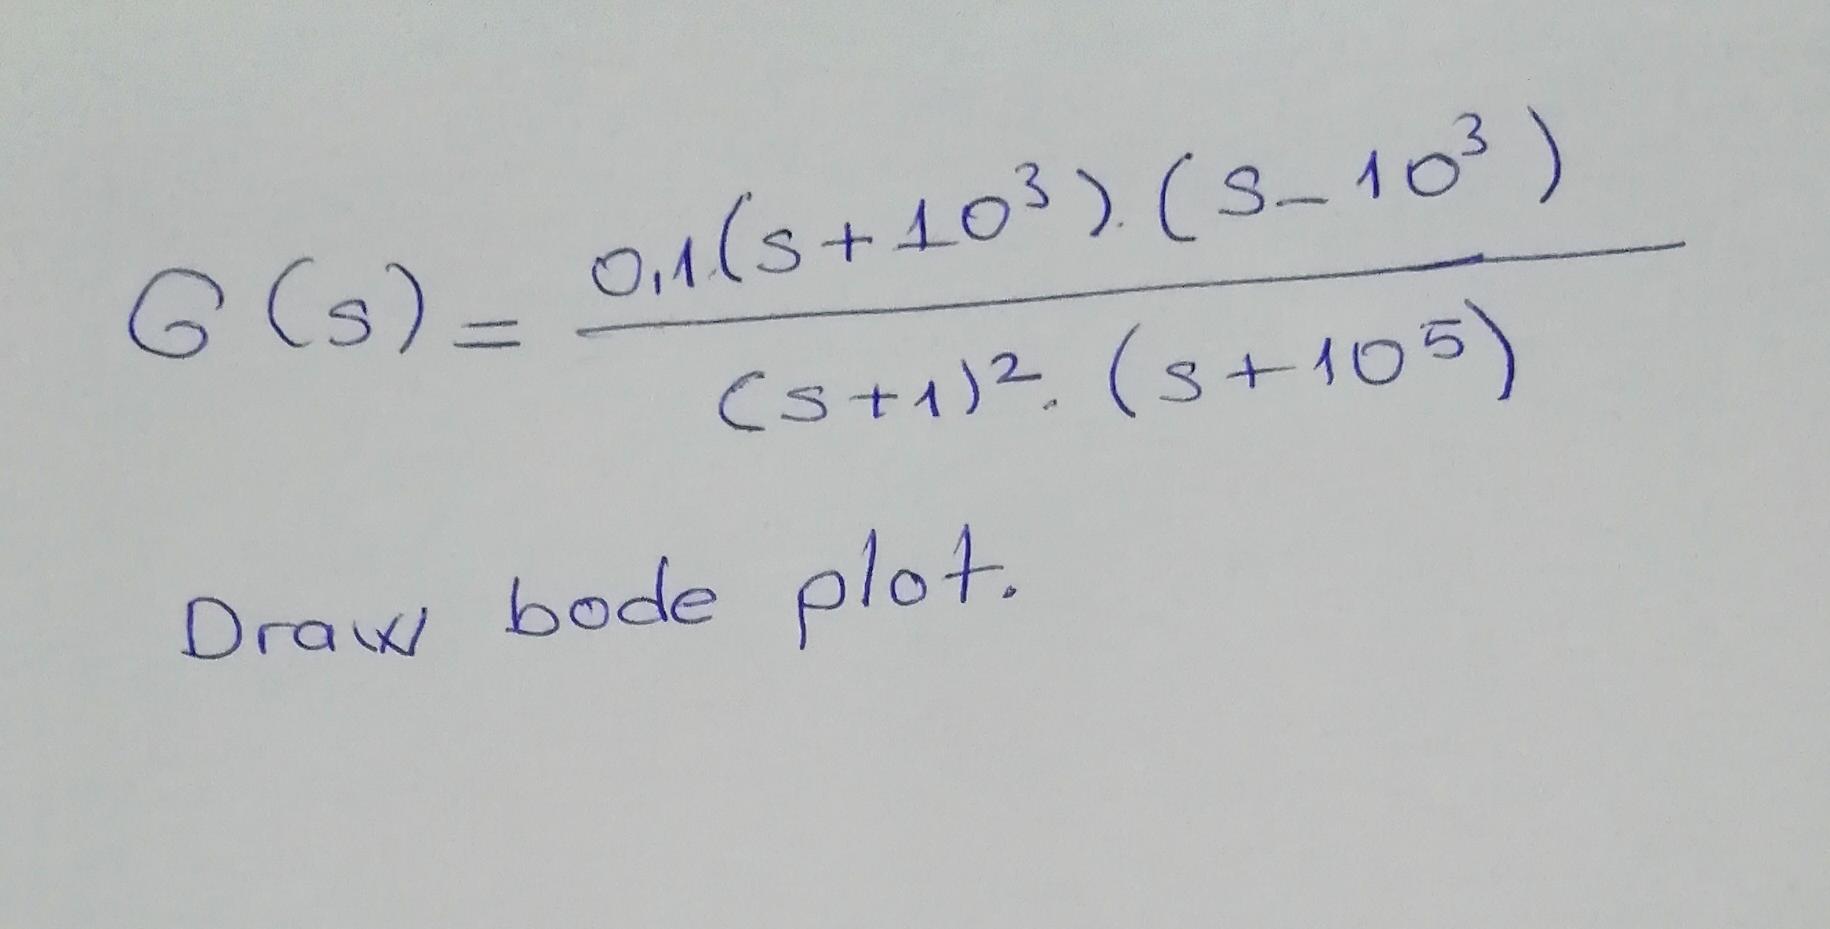 G(s) = 0,1.(s+10³).(s-10³) / (s+1)².(s+10⁵)
Draw bode plot.